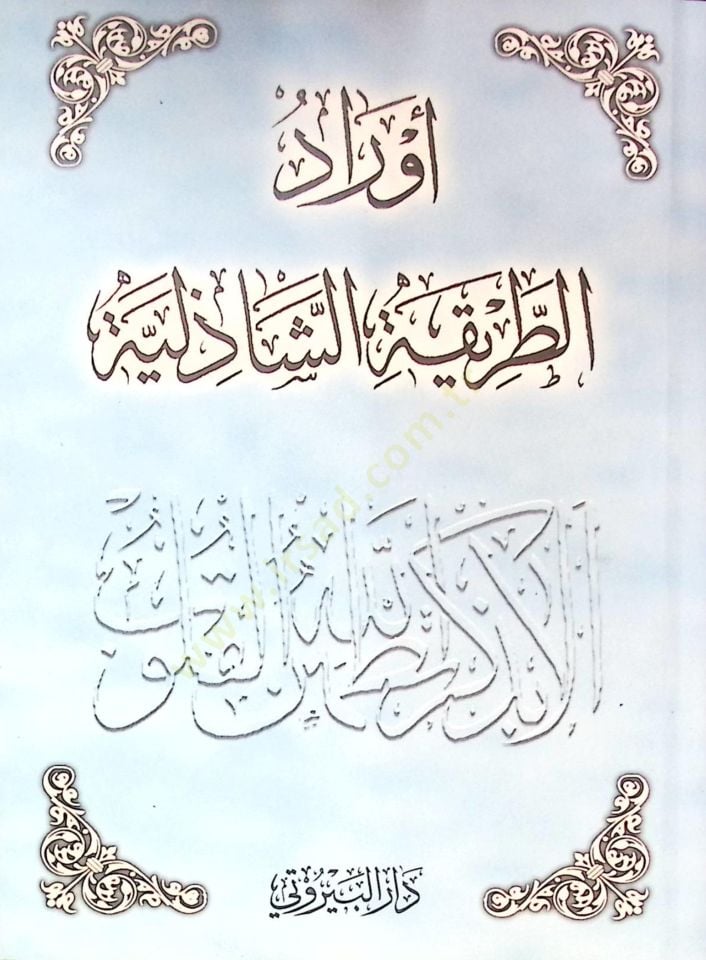 أَوْرَادُ
الطَّرِيقَةِ الشَّاذِلِيَّة
ألا بذكر الله تطمئن القلوب
www.irsad.com.tr
دار البيروتي